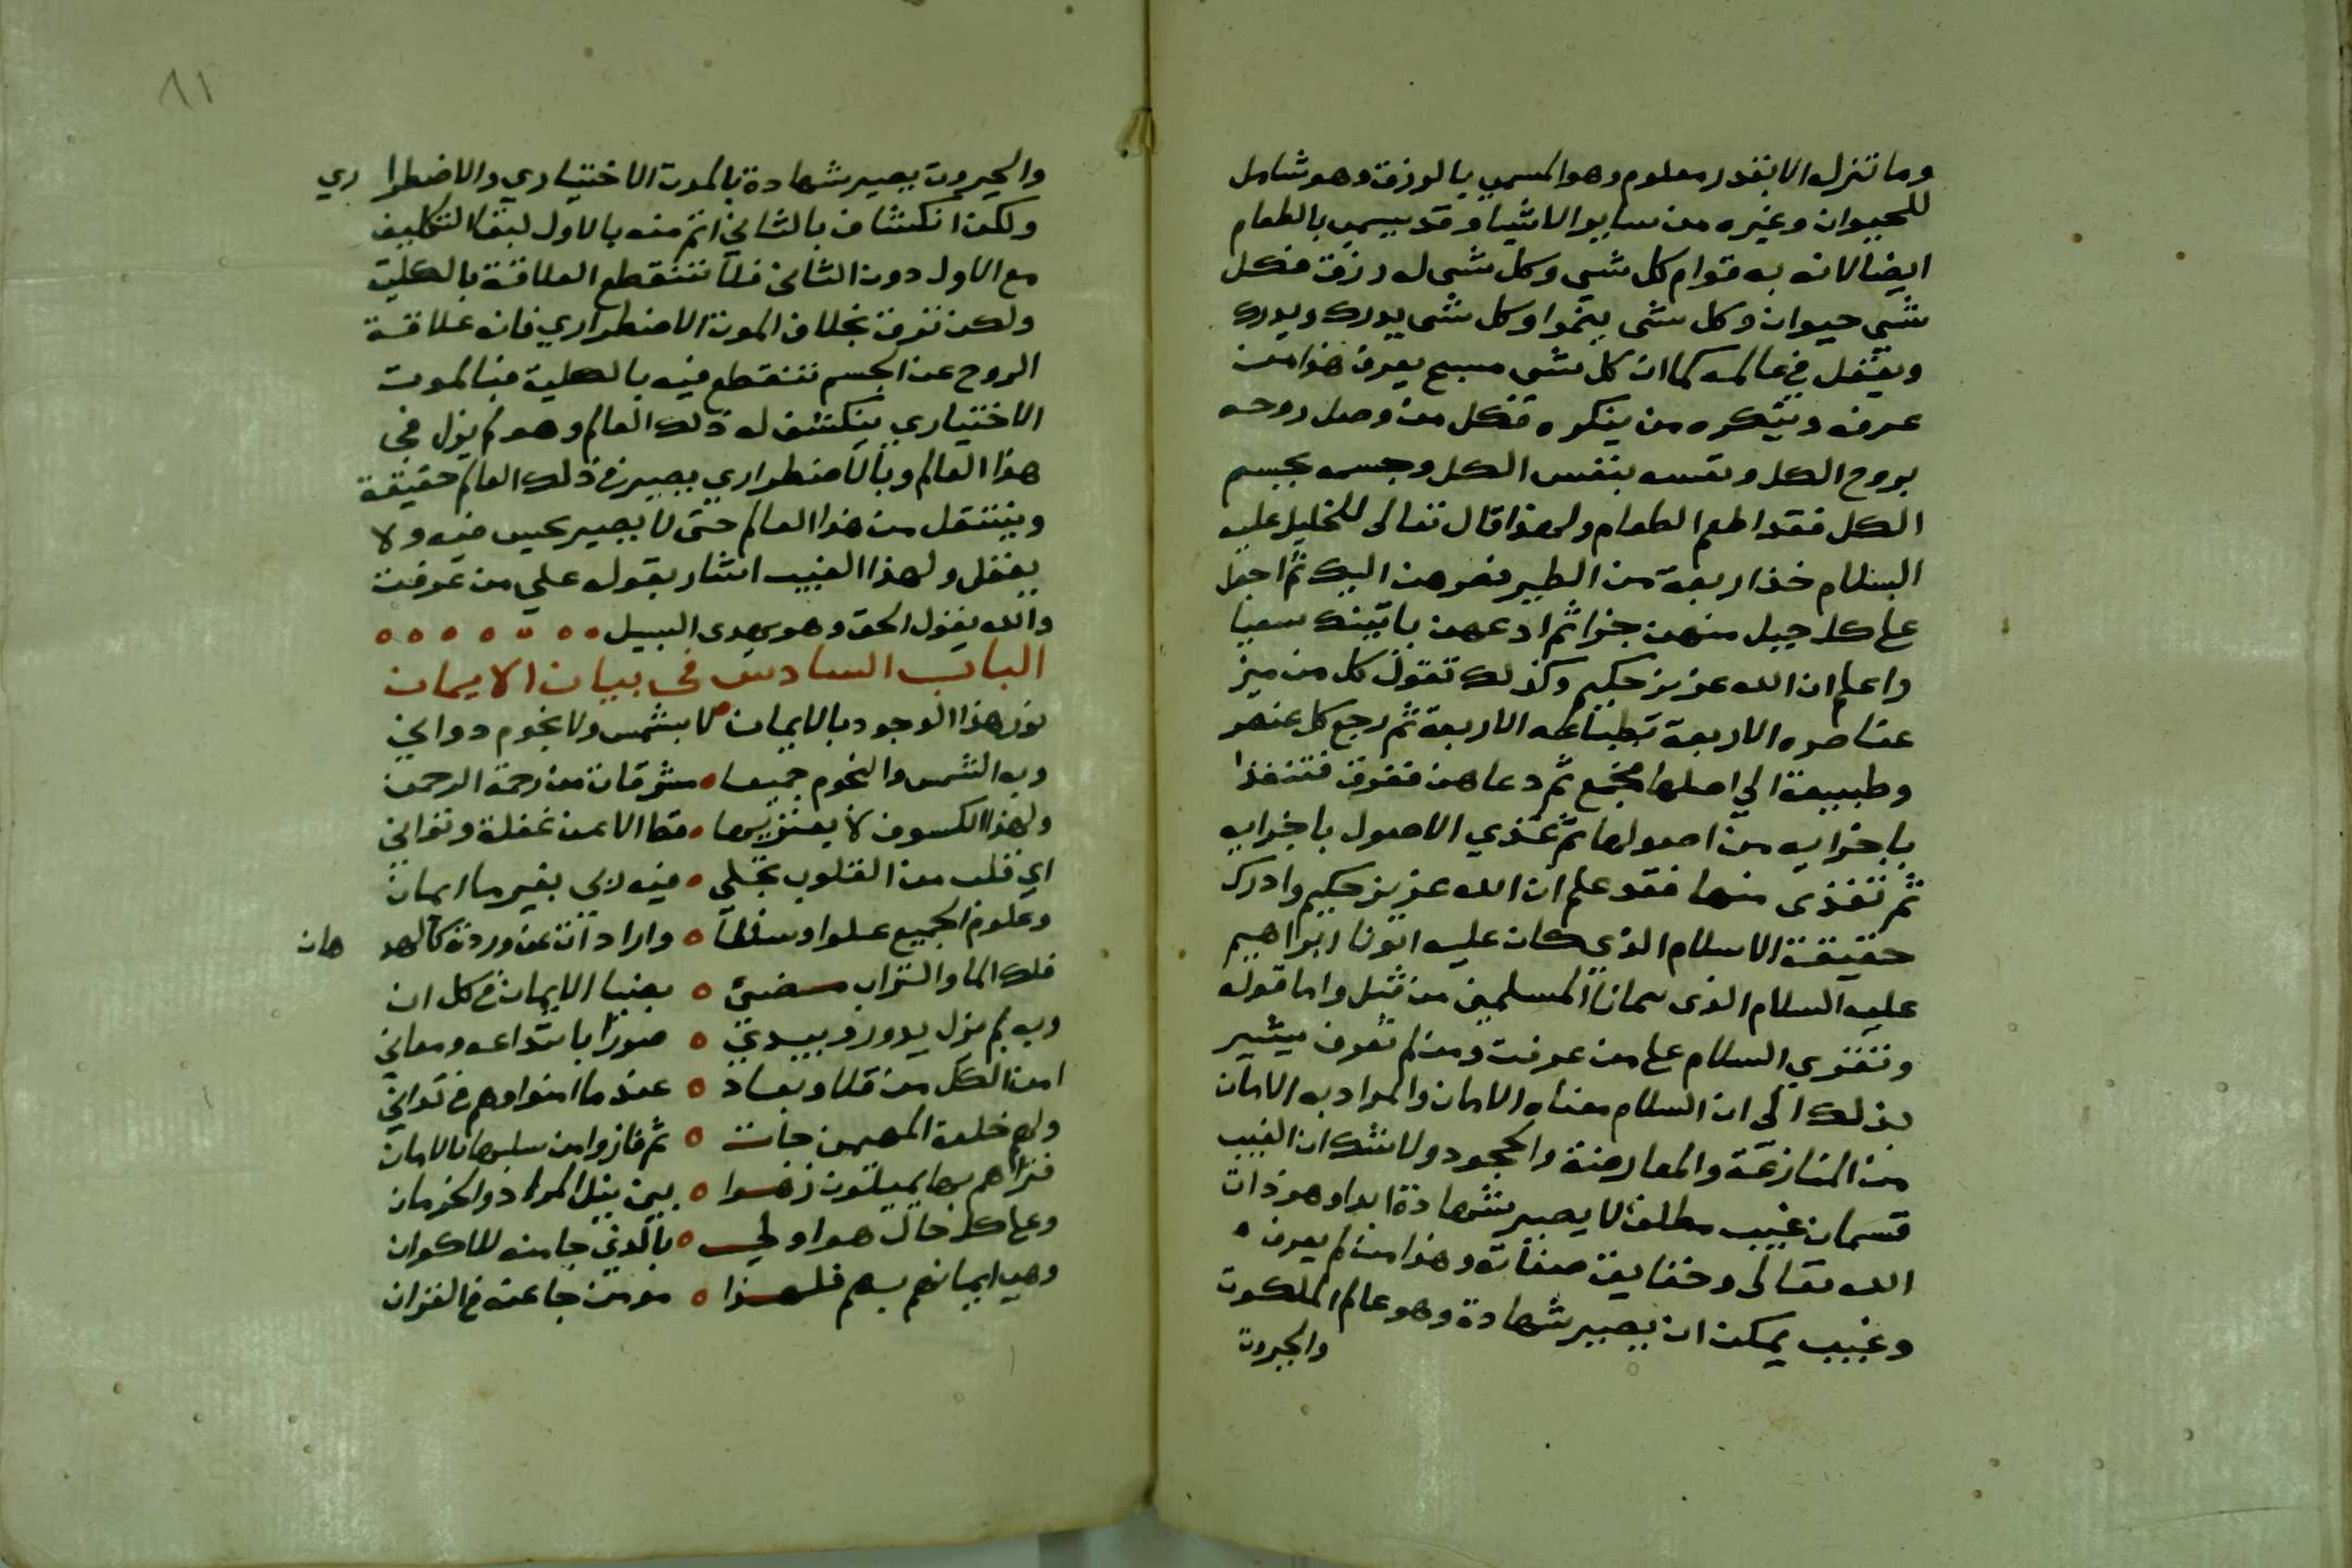 وما تنزله الا بقدر معلوم وهو المسمى بالرزق وهو شامل
للحيوان وغيره من ساير الاشيا وقد يسمى بالطعام
ايضا لانه به قوام كل شي وكل شي له رزق فكل
شي حيوان وكل شي ينموا وكل شي يدرك ويدرك
ويعقل في عالمه كما ان كل شي مسبح يعرف هذا من
عرفه وينكره من ينكره فكل من وصل روحه
بروح الكل ونفسه بنفس الكل وجسمه بجسم
الكل فقد اطعم الطعام ولهذا قال تعالى للخليل عليه
السلام خذ اربعة من الطير فصرهن اليك ثم اجعل
على كل جبل منهن جزا ثم ادعهن ياتينك سعيا
واعلم ان الله عزيز حكيم وكذلك تقول كل من ميز
عناصره الاربعة بطبائعه الاربعة ثم رجع كل عنصر
وطبيعة الي اصلها فجمع ثم دعاهن فتفرق فتغذا
باجزايه من اصولها ثم غذي الاصول باجزايه
ثم تغذى منها فقد علم ان الله عزيز حكيم وادرك
حقيقة الاسلام الذي كان عليه ابونا ابراهيم
عليه السلام الذي سمانا المسلمين من قبل واما قوله
وتقري السلام على من عرفت ومن لم تعرف يشير
بذلك الى ان السلام معناه الامان والمراد به الامان
من المنازعة والمعارضة والجحود ولا شك ان الغيب
قسمان غيب مطلق لا يصير شهادة ابدا وهو ذات
الله تعالى وحقايق صفاته وهذا من لم يعرف
وغيب يمكن ان يصير شهادة وهو عالم الملكوت
والجبروت
٨١
والجبروت يصير شهادة بالموت الاختياري والاضطراري
ولكن انكشاف بالثاني اتم منه بالاول لبقا التكليف
مع الاول دون الثاني فلا تنقطع العلاقة بالكلية
ولكن ترق بخلاف الموت الاضطراري فان علاقة
الروح عن الجسم تنقطع فيه بالكلية فبالموت
الاختياري ينكشف له ذلك العالم وهو لم يزل في
هذا العالم وبالاضطراري يصير في ذلك العالم حقيقة
وينتقل من هذا العالم حتى لا يصير يحس فيه ولا
يعقل ولهذا الغيب اشار بقوله على من عرفت
والله يقول الحق وهو يهدى السبيل
الباب السادس في بيان الايمان
نور هذا الوجود بالايمان لا بشمس ولا نجوم دواني
وبه الشمس والنجوم جميعا مشرقات من رحمة الرحمن
ولهذا الكسوف لا يعتريها قط الا عن غفلة وتواني
اي قلب من القلوب تجلى فيه ربي بغير ما ايمان
وعلوم الجميع علوا وسفلا وارادات عن وردة كالدهان
فلك الما والتراب مضئ بضيا الايمان في كل ان
وبه لم يزل يدور ويبدي صورا بابتداعه ومعاني
امن الكل من قلا وبعاد عندما امنوا وهم في تداني
ولهم خلعة المهيمن جات ثم فازوا من سلبها بالامان
فتراهم بها يميلون زهوا بين نيل المراد والحرمان
وعلى كل حال هوا ولي بالذي جا منه للاكوان
وهب ايمانهم بهم فلهذا مومن جا عنه في القران